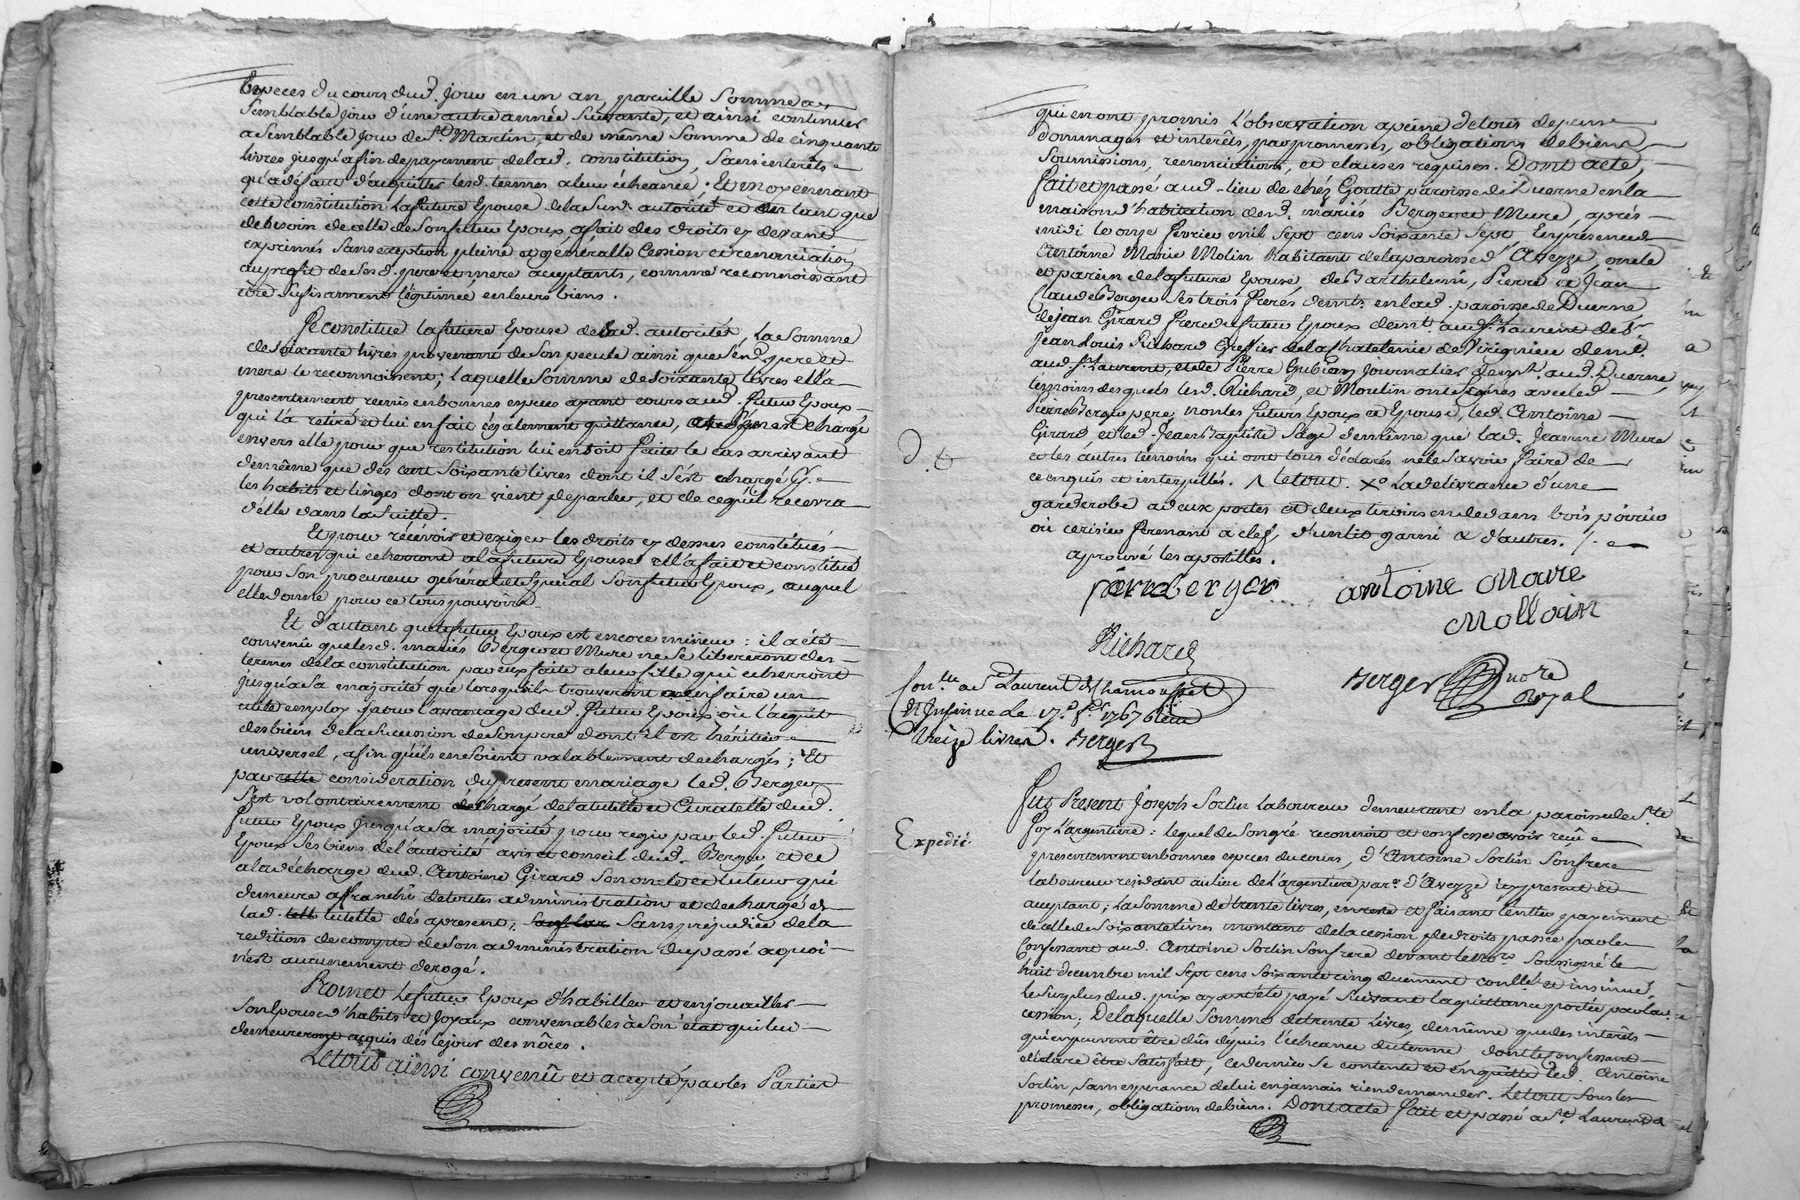 Especes du cours dud. jour en un an, pareille somme a
semblable jour d'une autre année suivante, et ainsi continuer
a semblable jour de St. Martin, et de même somme de cinquante
livres jusqu'a fin de payement de lad. constitution, sans interêts
qu'a défaut d'acquitter lesd. termes a leur échéance; Et moyennant
cette constitution la future Epouse de la susd. autorité et en tant que
de besoin de celle de son futur Epoux a fait des droits cy devant
exprimés sans exception pleine et générale Cession et renonciation
au profit de sesd. pere et mere acceptants, comme reconnoissant
être suffisamment légitimée en leurs biens.
Se constitue la future Epouse de lad. autorité, la somme
de soixante livres provenant de son pecule ainsi que sesd. pere et
mere le reconnoissent; laquelle somme de soixante livres ella
presentement remis en bonnes especes ayant cours aud. futur Epoux
qui l'a retiré et lui en fait également quittance, et s'en est chargé
envers elle pour que restitution lui en soit faite le cas arrivant
de même que des cent soixante livres dont il s'est chargé
les habits et linges dont on vient de parler, et de ce qu'il recevra
d'elle dans la suitte.
Et pour récévoir et exiger les droits cy dessus constitués
et autres qui echerront a la future Epouse ell'a fait et constitué
pour son procureur général et spécial son futur Epoux, auquel
elle donne pour ce tous pouvoirs.
Et d'autant que le futur Epoux est encore mineur: il a été
convenu que lesd. mariés Berger et Mure ne se libereront des
termes de la constitution par eux faite a leur fille qui echerront
jusqu'a sa majorité que lorsqu'ils trouveront a en faire un
utile employ pour l'avantage dud. futur Epoux où l'acquit
des biens de la succession de son pere dont il est héritier
universel, afin qu'ils en soient valablement dechargés; Et
par cette consideration du present mariage led. Berger
s'est volontairement chargé de la tutelle et Curatelle dud.
futur Epoux jusqu'a sa majorité pour regir par led. futur
Epoux ses biens de l'autorité avis et conseil dud. Berger et ce
a la décharge dud. Antoine Girard son oncle et tuteur qui
demeure affranchi de toutes administration et dechargé de
lad. tutelle dés apresent; sans préjudice de la
reddition de compte de son administration du passé a quoi
n'est aucunement derogé.
Promet le futur Epoux d'habiller et enjouailler
son Epouse d'habits et Joyaux convenables à son état qui lui
demeureront acquis dés le jour des nôces.
Le tout ainsi convenû et accepté par les Parties
qui en ont promis l'observation a peine de tous depens
dommages et interêts, par promesses, obligations de biens
soumissions, renonciations, et clauses requises. Dont acte,
fait et passé aud. lieu de chéz Goutte paroisse de Duerne en la
maison d'habitation desd. mariés Berger et Mure, aprés
midi le onze fevrier mil sept cens soixante sept En presence
Antoine Marie Molin habitant de la paroisse d'Aveyze, oncle
et parein de la future Epouse, de Barthelemi, Pierre et Jean
Claude Berger ses trois freres demts. en lad. paroisse de Duerne
de Jean Girard frere du futur Epoux demt. aud. St. Laurent de Sr.
Jean Louis Richard Greffier de la Chatelenie de Virignieu demt.
aud. St. Laurent, et de Pierre Gubian journalier demt. aud. Duerne,
témoins desquels lesd. Richard, et Moulin ont signés avec led.
Pierre Berger pere, non les futurs Epoux et Epouse, led. Antoine
Girard, et led. Jean Baptiste Sage de même que lad. Jeanne Mure
et les autres témoins qui ont tous déclarés ne le savoir faire de
ce enquis et interpellés. le tout. La delivrance d'une
garderobe a deux portes et deux tiroirs en dedans bois poirier
où cerisier fermant a clef, d'un lit garni & d'autres.
aprouvé les apostilles.
D. G
pierre berger
antoine Marie
Mollain
Richard
Berger nore
Royal
Conllé a St Laurent de Chamousset
Et Insinué le 17e. fer. 1767 Reçu
treize livres. Berger
Expedié
Fut Present Joseph Sorlin laboureur demeurant en la paroisse de Ste
Foy l'argentiere: lequel de son gré reconnoit et confesse avoir reçû
presentement en bonnes especes du cours, d'Antoine Sorlin son frere
laboureur residant au lieu de l'argentiere parse. d'Aveyze icy present et
acceptant; la somme de trente livres, en reste et faisant l'entier payement
de celle de soixante livres montant de la cession de droits passée par le
Confessant aud. Antoine Sorlin son frere devant le nore. soussigné le
huit decembre mil sept cens soixante cinq duement conllée et insinuée,
le surplus dud. prix ayant eté payé suivant la quittance portée par la
cession; De laquelle somme de trente livres, de même que des interêts
qui en peuvent être dûs dépuis l'échéance du terme, dont le confessant
déclare être satisfait, ce dernier se contente et en quitte led. Antoine
Sorlin sans esperance de lui en jamais rien demander. Le tout sous les
promesses, obligations de biens. Dont acte fait et passé a St. Laurent de